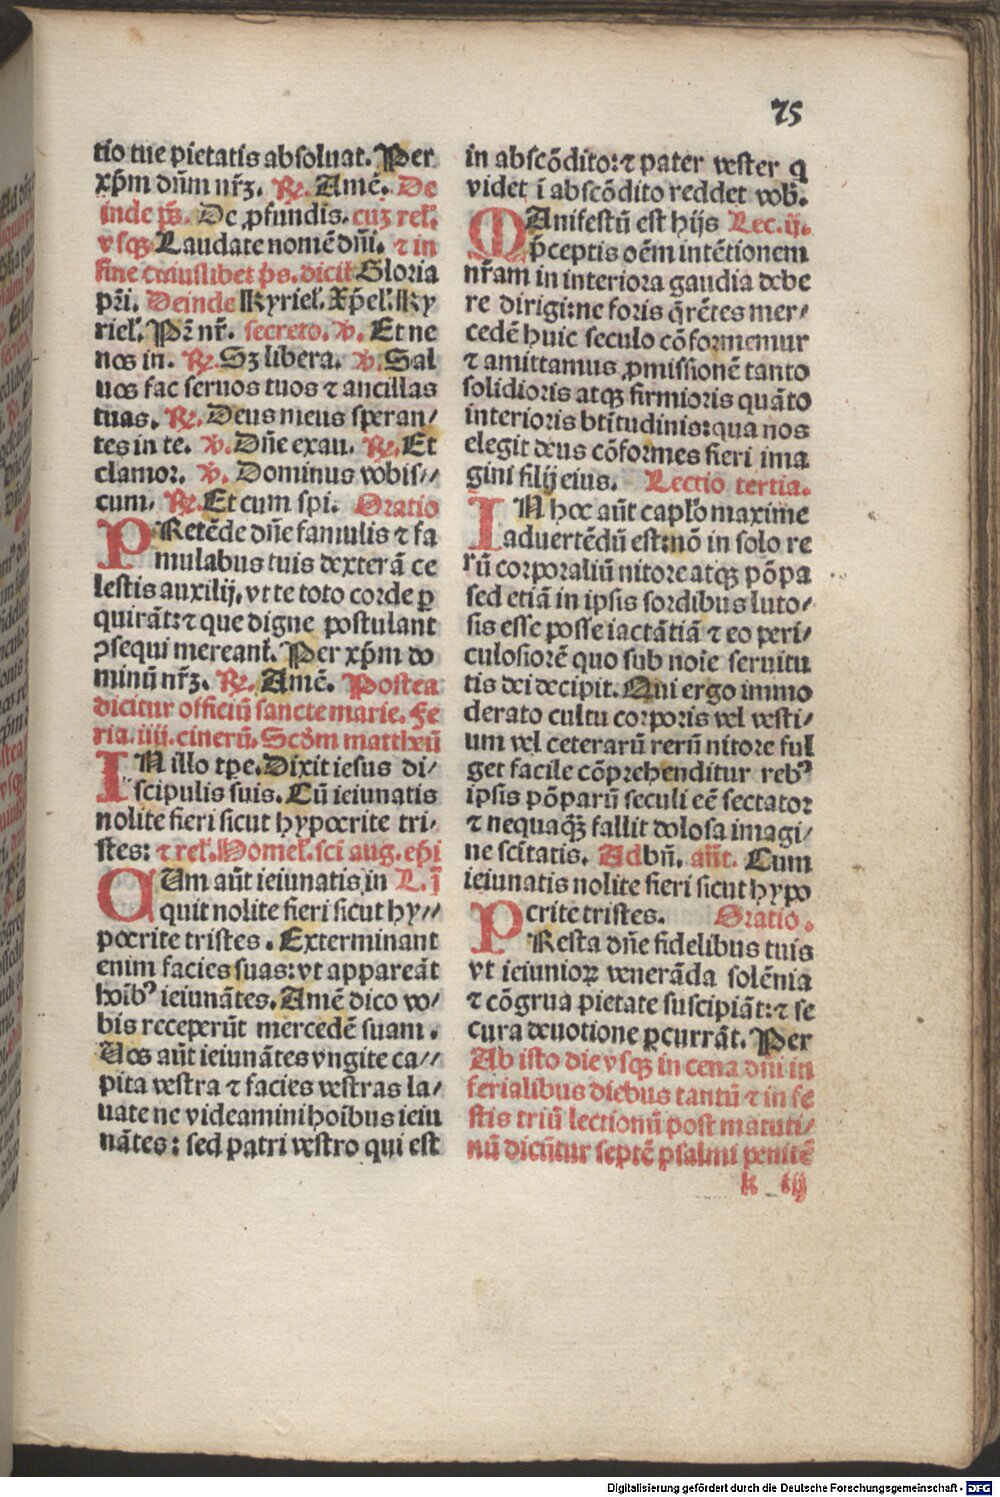 75
tio tue pietatis absoluat. Per
xp̄m dn̄m nr̄ꝫ. ℟. Amē. De
inde ps̄. De ꝓfundis. cuꝫ rel̄.
vsqꝫ Laudate nomē dn̄i. ⁊ in
fine cuiuslibet ps. dicit̄ Gloria
pr̄i. Deinde Kyriel̄. Xp̄el̄. Ky
riel̄. Pr̄ nr̄. secreto. ℣. Et ne
nos in. ℟. Sꝫ libera. ℣. Sal
uos fac seruos tuos ⁊ ancillas
tuas. ℟. Deus meus speran/
tes in te. ℣. Dn̄e exau. ℟. Et
clamor. ℣. Dominus vobis//
cum. ℟. Et cum spi. Oratio
PRetēde dn̄e famulis ⁊ fa
mulabus tuis dexterā ce
lestis auxilij. vt te toto corde ꝑ
quirāt: ⁊ que digne postulant
ꝯsequi mereant̄. Per xp̄m do
minū nr̄ꝫ. ℟. Amē. Postea
dicitur officiū sancte marie. Fe
ria. iiij. cinerū. Scd̄m mattheū
IN illo tꝑe. Dixit iesus di/
scipulis suis. Cū ieiunatis
nolite fieri sicut hypocrite tri/
stes: ⁊ rel̄. Homel̄. sci aug. ep̄i
CUm aūt ieiunatis in L. j
quit nolite fieri sicut hy//
pocrite tristes. Exterminant
enim facies suas: vt appareāt
hoībꝰ ieiunātes. Amē dico vo/
bis receperūt mercedē suam.
Uos aūt ieiunātes vngite ca//
pita vestra ⁊ facies vestras la/
uate ne videamini hoībus ieiu
nātes: sed patri vestro qui est
in abscōdito: ⁊ pater vester q
videt ī abscōdito reddet vob̄.
MAnifestū est hijs Lec. ij.
p̄ceptis oēm intētionem
nr̄am in interiora gaudia debe
re dirigi: ne foris q̄rētes mer/
cedē huic seculo cōformemur
⁊ amittamus ꝓmissionē tanto
solidioris atqꝫ firmioris quāto
interioris bt̄itudinis: qua nos
elegit deus cōformes fieri ima
gini filij eius. Lectio tertia.
IN hoc aūt capl̄o maxime
aduertēdū est: nō in solo re
rū corporaliū nitore atqꝫ pōpa
sed etiā in ipsis sordibus luto/
sis esse posse iactātiā ⁊ eo peri/
culosiorē quo sub noīe seruitu
tis dei decipit. Qui ergo immo
derato cultu corporis vel vesti/
um vel ceterarū rerū nitore ful
get facile cōprehenditur rebꝰ
ipsis pōparū seculi eē sectator
⁊ nequaqꝫ fallit dolosa imagi/
ne sc̄itatis. Ad bn̄. an̄t. Cum
ieiunatis nolite fieri sicut hypo
crite tristes. Oratio.
PResta dn̄e fidelibus tuis
vt ieiunioꝝ venerāda solēnia
⁊ cōgrua pietate suscipiāt: ⁊ se
cura deuotione ꝑcurrāt. Per
Ab isto die vsqꝫ in cena dn̄i in
ferialibus diebus tantū ⁊ in fe
stis triū lectionū post matuti/
nū dicūtur septē psalmi penitē
k iij
Digitalisierung gefördert durch die Deutsche Forschungsgemeinschaft - DFG